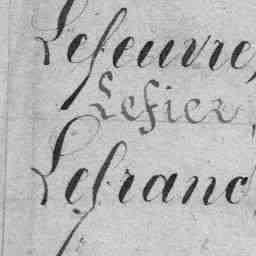 Lefeuvre,
Lefier,
Lefranc